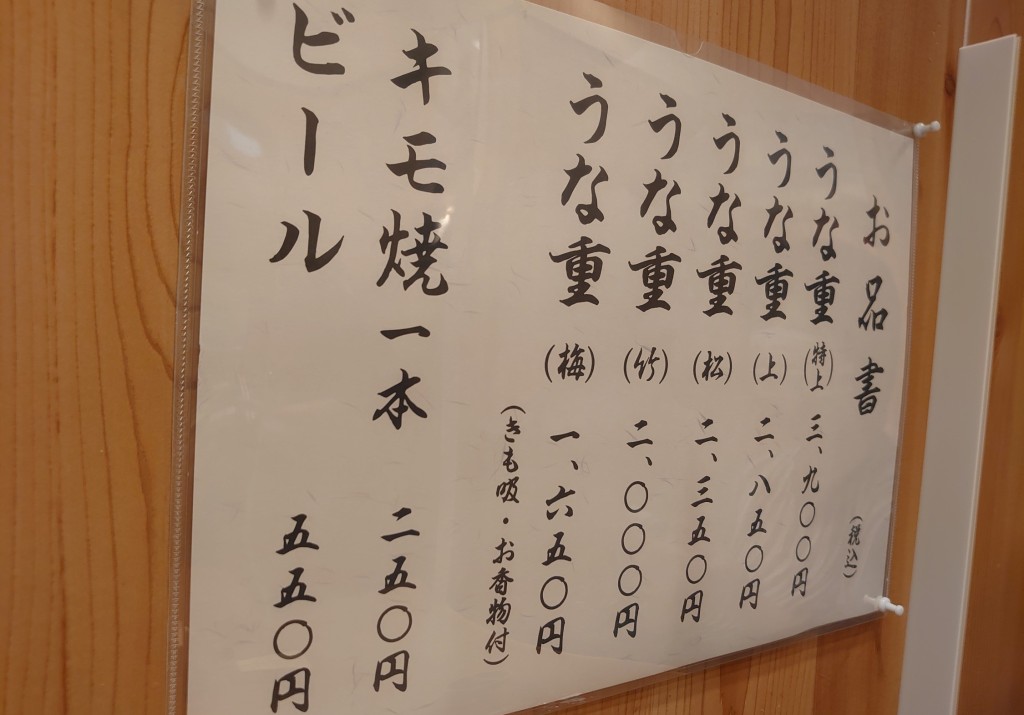 お品書
(税込)
うな重(特上) 三、九〇〇円
うな重(上) 二、八五〇円
うな重(松) 二、三五〇円
うな重(竹) 二、〇〇〇円
うな重(梅) 一、六五〇円
(きも吸・お香物付)
キモ焼一本 二五〇円
ビール 五五〇円